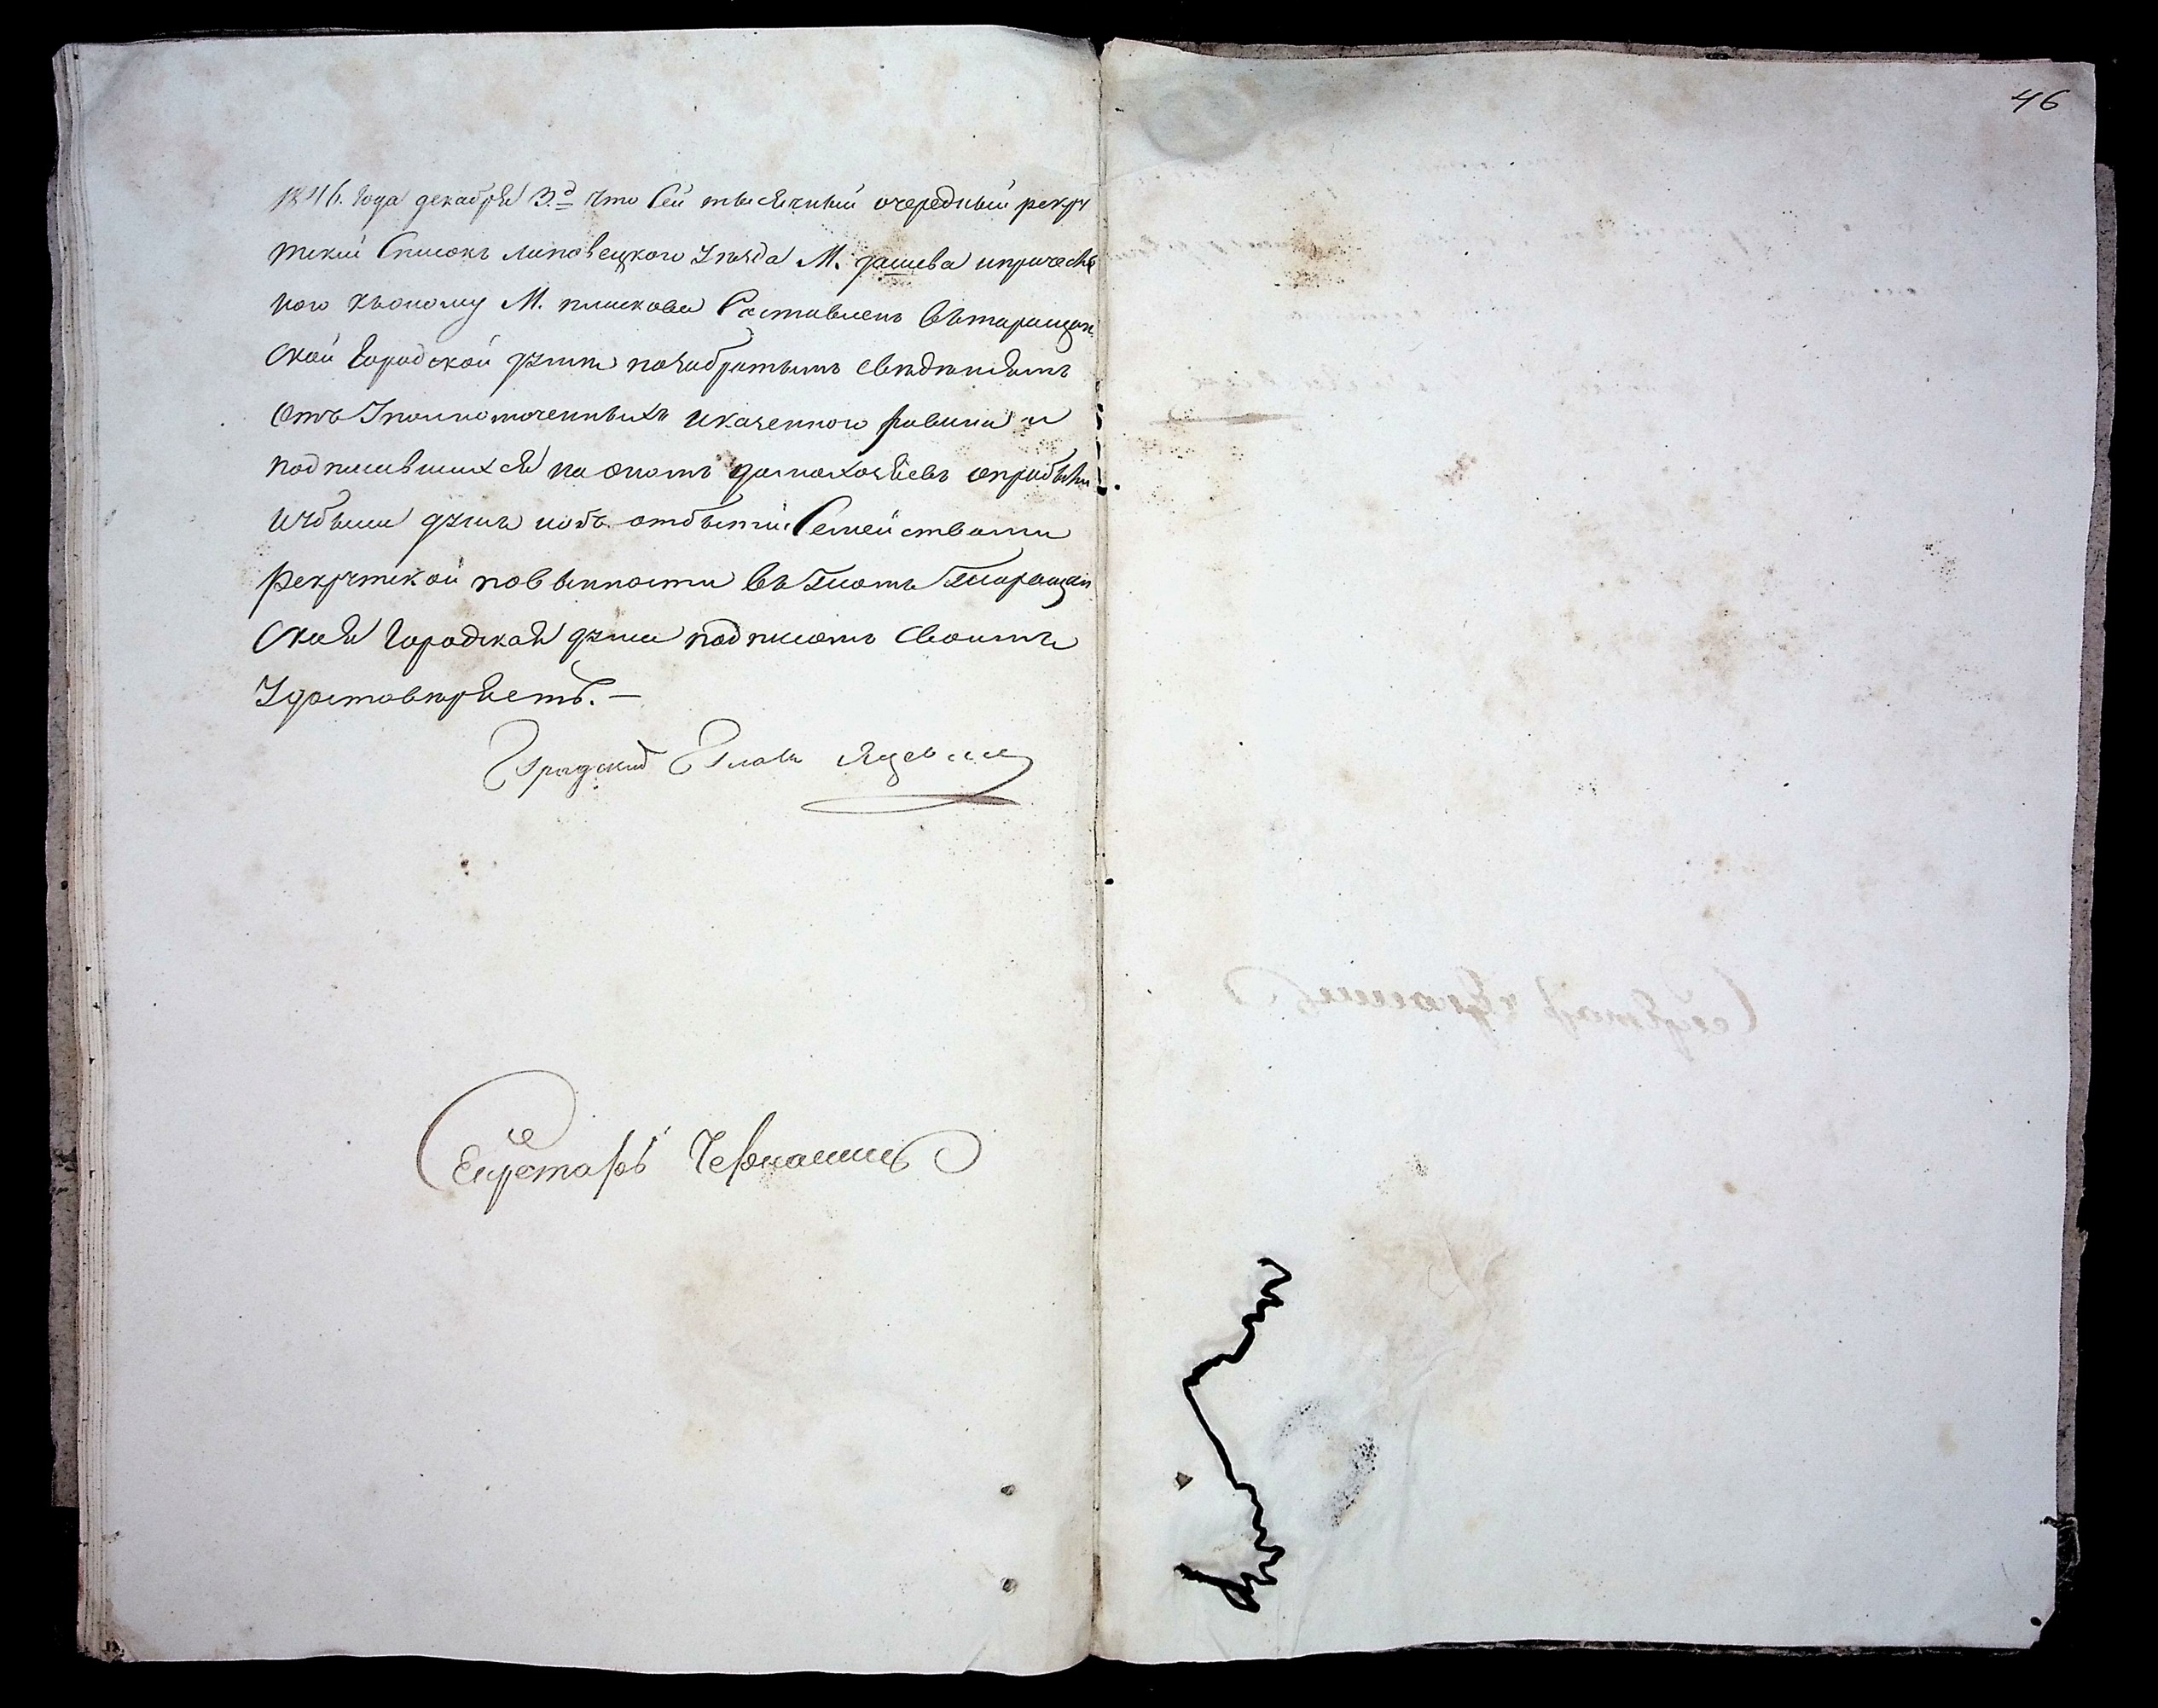 46
1846. Года декабря 3.д что Сей тысячный очередный рекру
тский Список липовецкого Уезда М. дашева и причаст
ного къоному М. плискова Составленъ вътаращан
ской Городской думе пособратымъ сведениямъ
Отъ Уполномоченныхъ и казенного равина и
подписавшихся на ономъ домохозяевъ оприбыли
и убыли душъ иобъ отбытии Семействами
Рекрутской повинности въ томъ Таращан
ская Городская дума подписомъ своимъ
Удостоверяетъ. —
Градский Глава
Секретарь